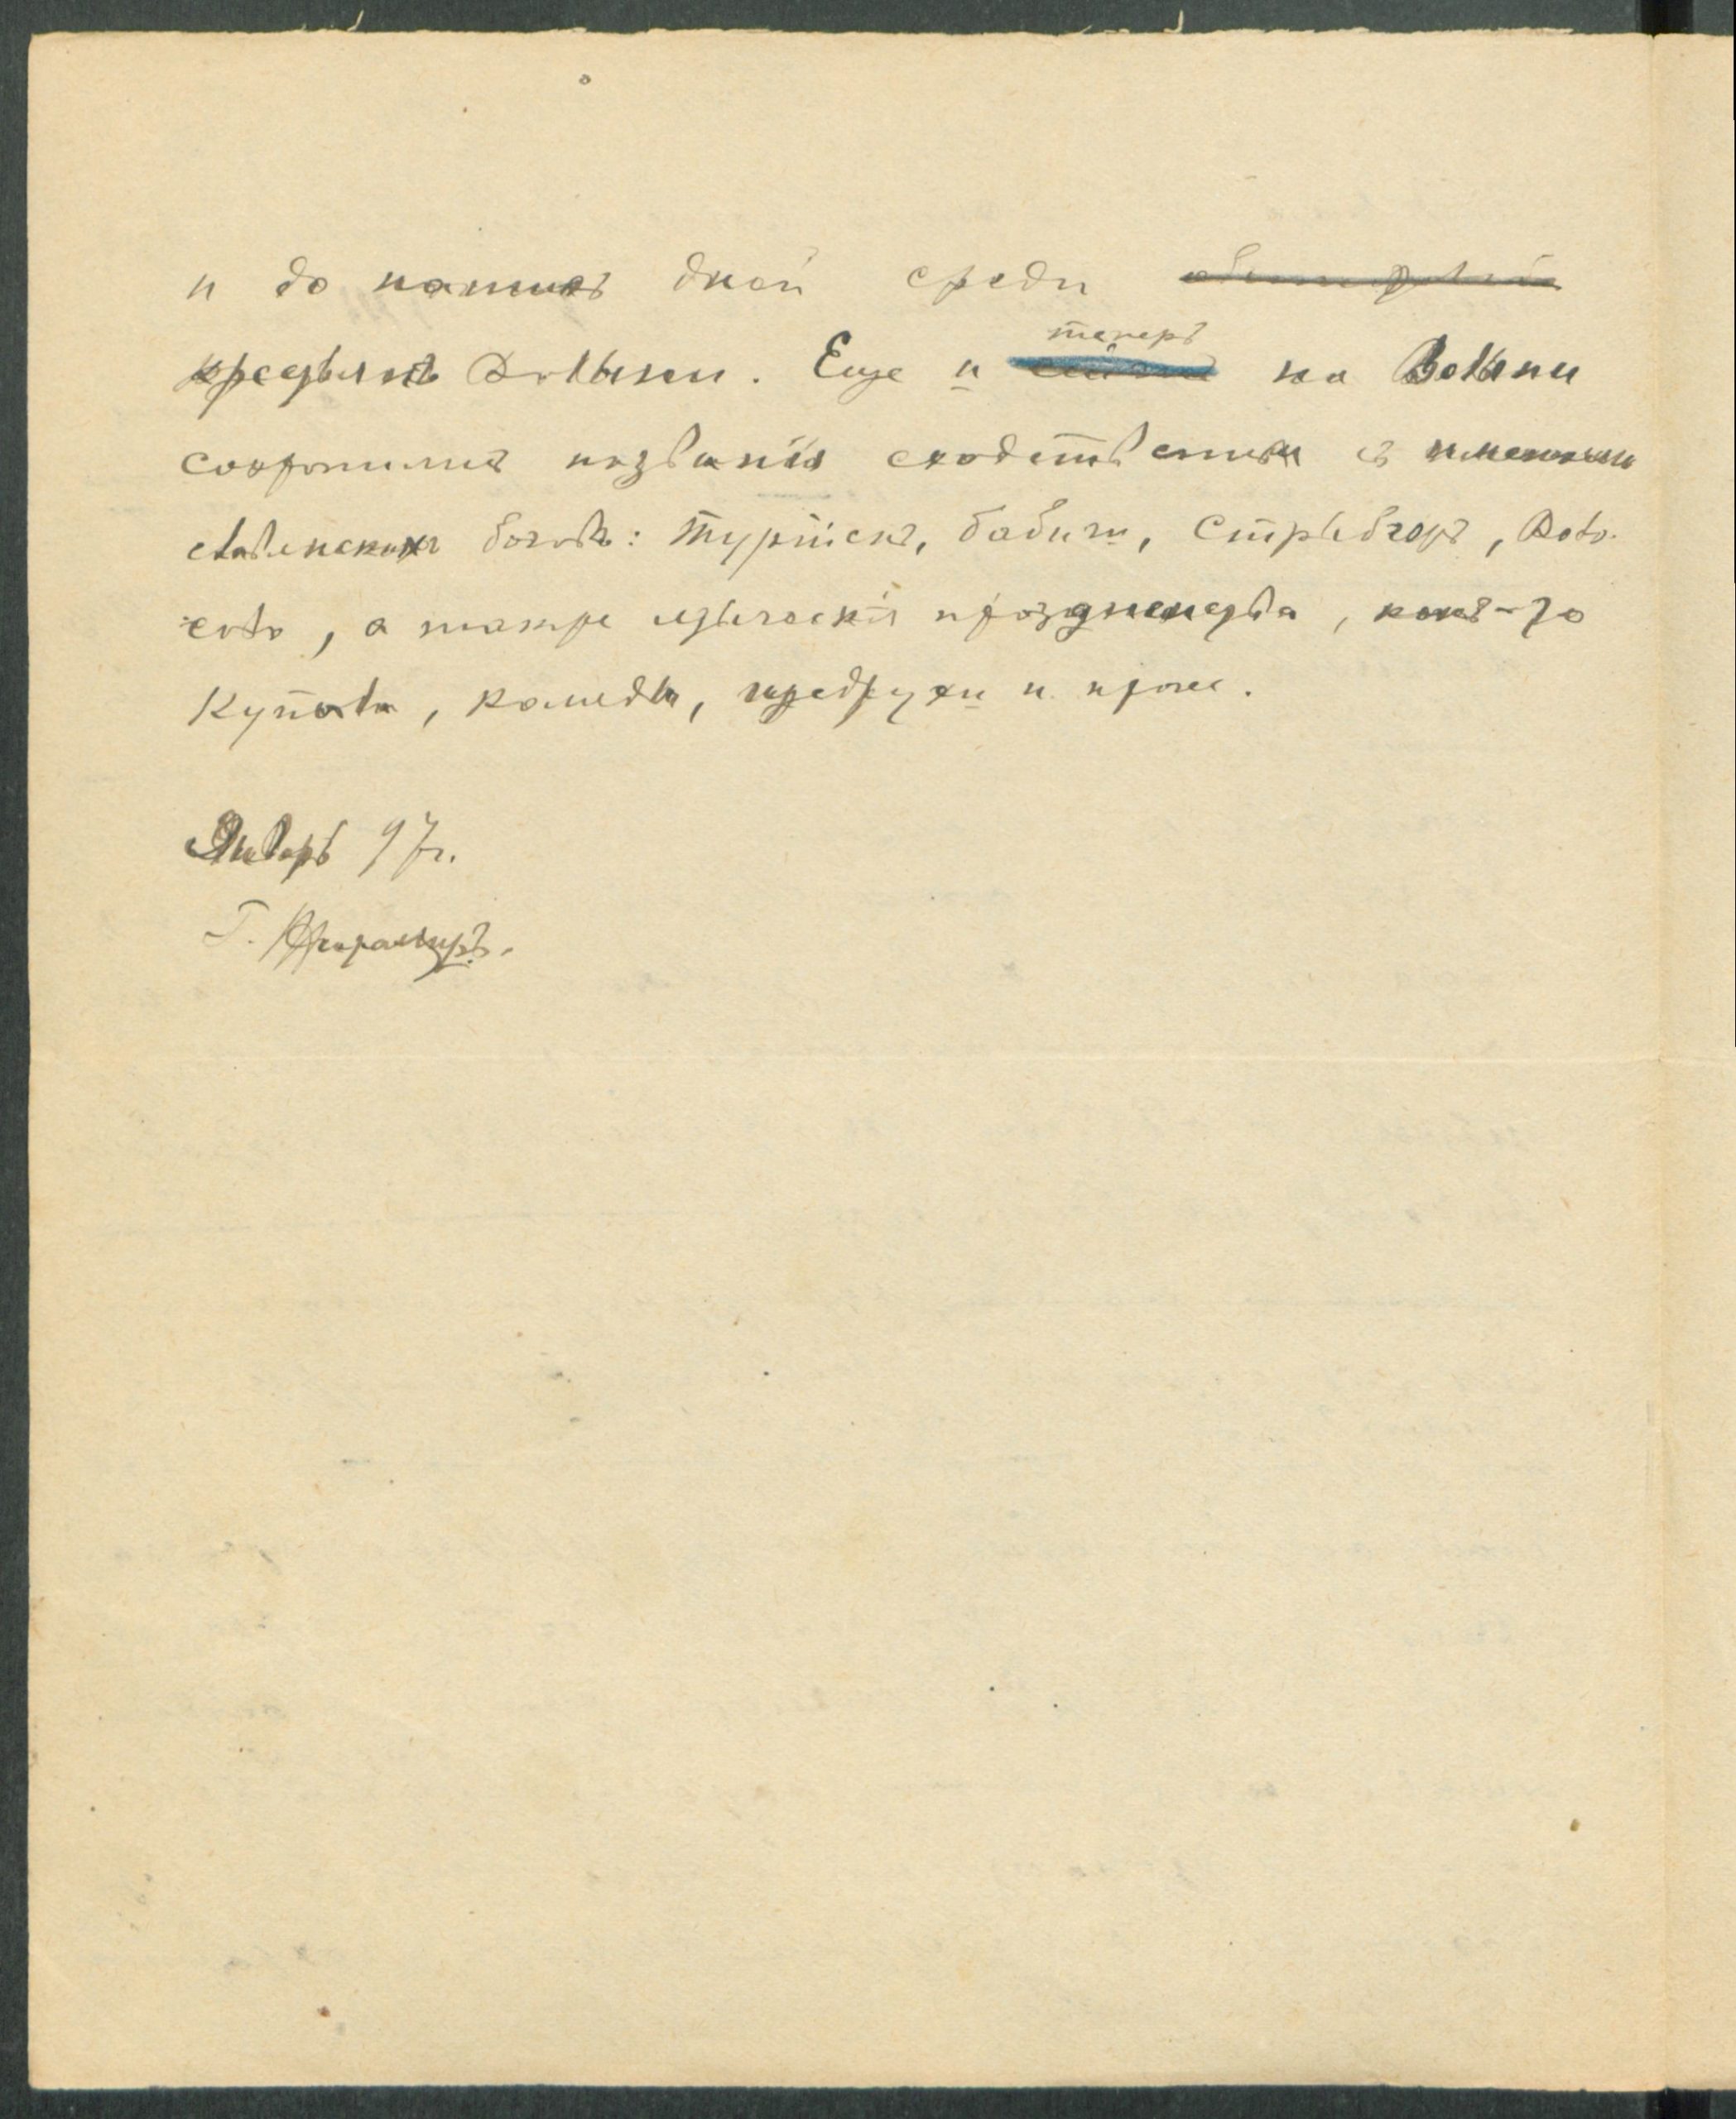 и до нашихъ дней среди
крестьянъ Волыни. Еще и теперь на Волыни
сохранились названія сходственныя съ именами
славянскихъ боговъ: Турійскъ, Бабичи, Стрибогъ, Воло-
сово, а также языческія празднества, какъ-то
Купала, Коляда, и проч.
Январь 97 г.
Г.